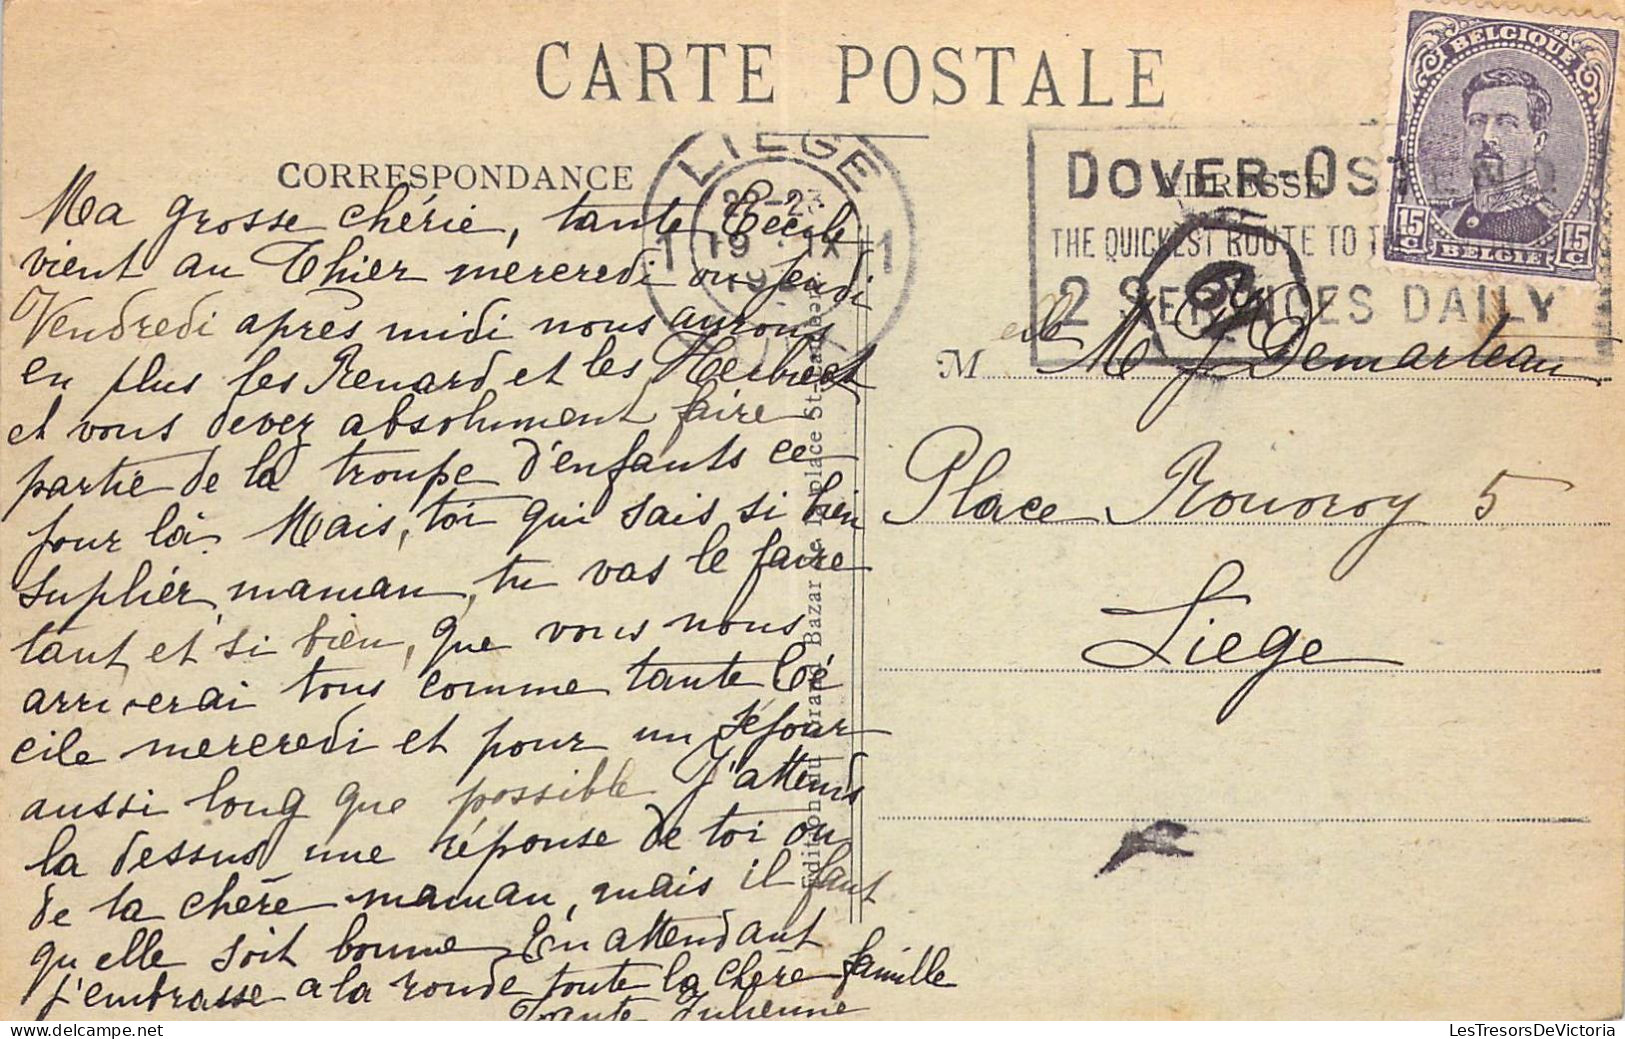 CARTE POSTALE
CORRESPONDANCE
ADRESSE
BELGIQUE
15 C
15 C
BELGIE
LIEGE
1 19 IX 1
DOVER-OSTEND
THE QUICKEST ROUTE TO
2 SERVICES DAILY
Ma grosse chérie, tante Cécile
vient au Thier mercredi ou jeudi
Vendredi après midi nous aurons
en plus les Renard et les
et vous devez absolument faire
partie de la troupe d'enfants ce
jour là. Mais, toi qui sais si bien
suplier maman, tu vas le faire
tant et si bien, que vous nous
arriverai tous comme tante Cé
cile mercredi et pour un séjour
aussi long que possible J'attends
la dessus une réponse de toi ou
de ta chère maman, mais il faut
qu'elle soit bonne En attendant
j'embrasse a la ronde toute la chère famille
Tante Julienne
Edition du Grand Bazar de la place St-Lambert
M elle M J Demarteau
Place Rouvroy 5
Liege
LesTresorsDeVictoria
www.delcampe.net